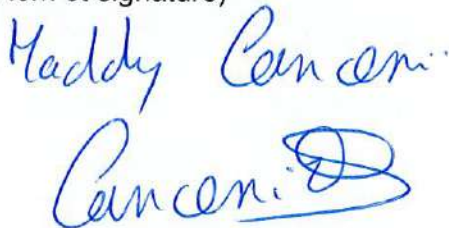 et signature)
Maddy Cancemi
Cancemi